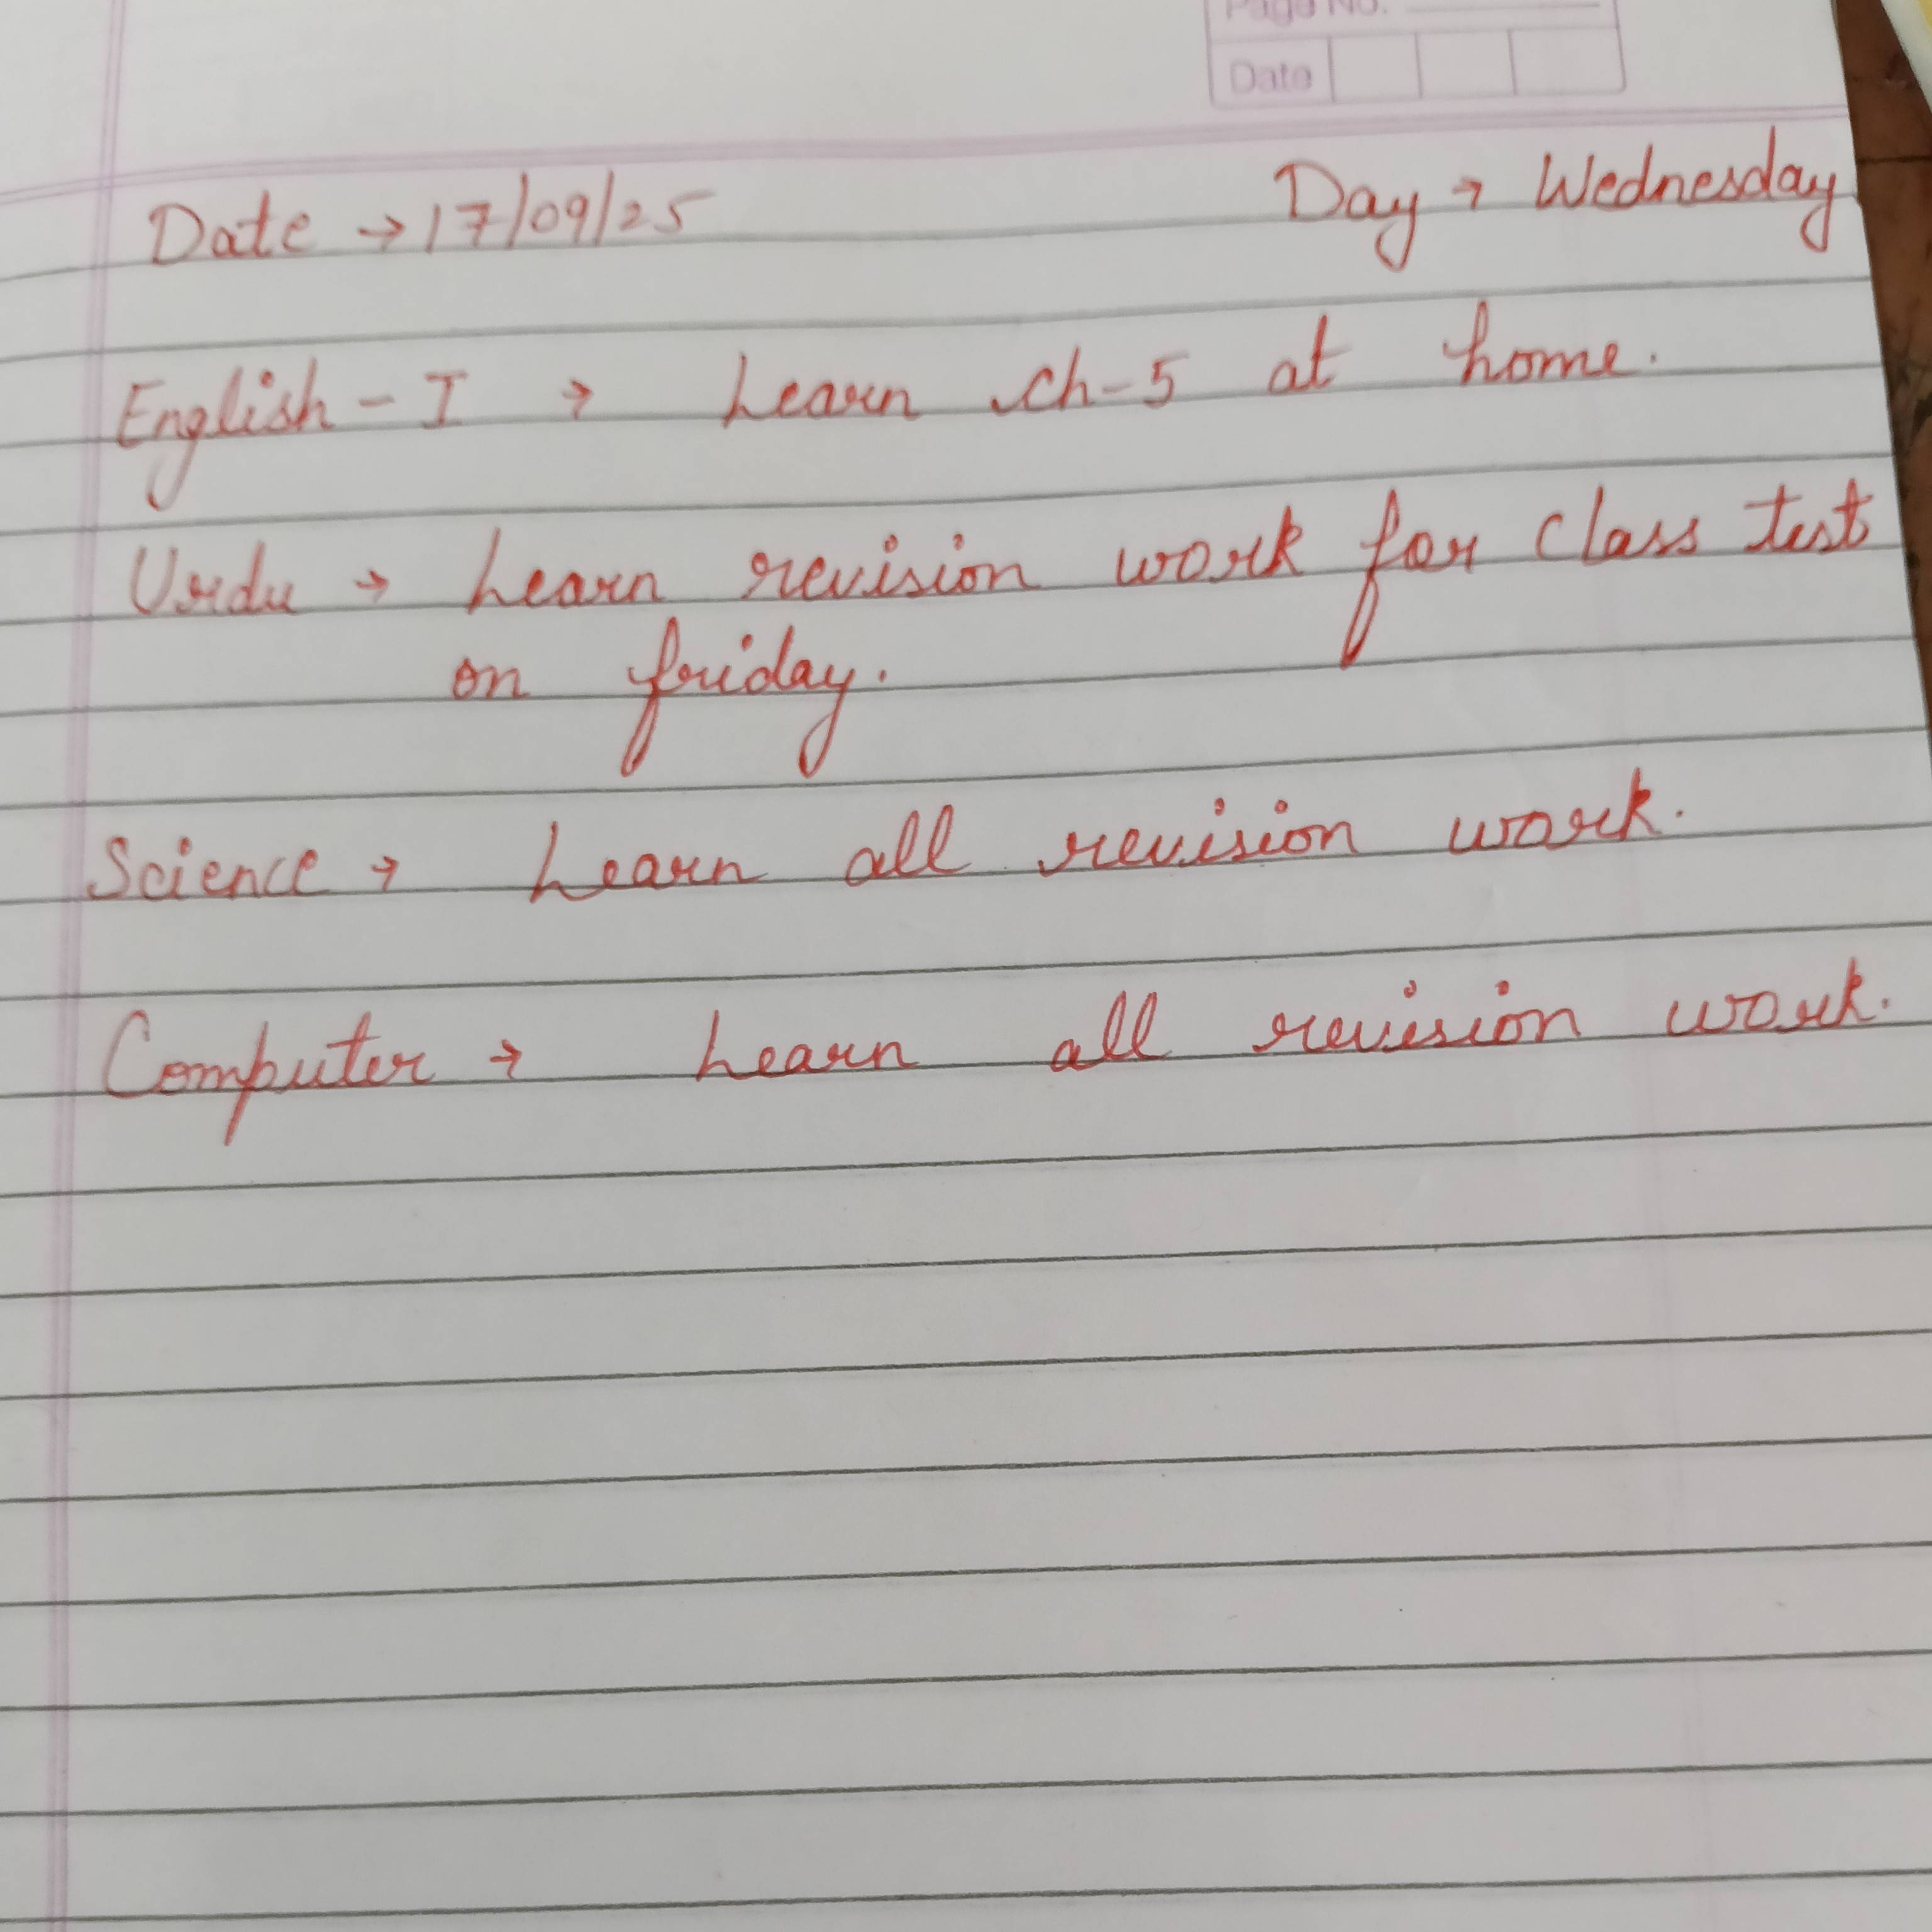 Page No.
Date
Date → 17/09/25 Day → Wednesday
English - I → Learn ch-5 at home.
Urdu → Learn revision work for class test
on friday.
Science → Learn all revision work.
Computer → Learn all revision work.